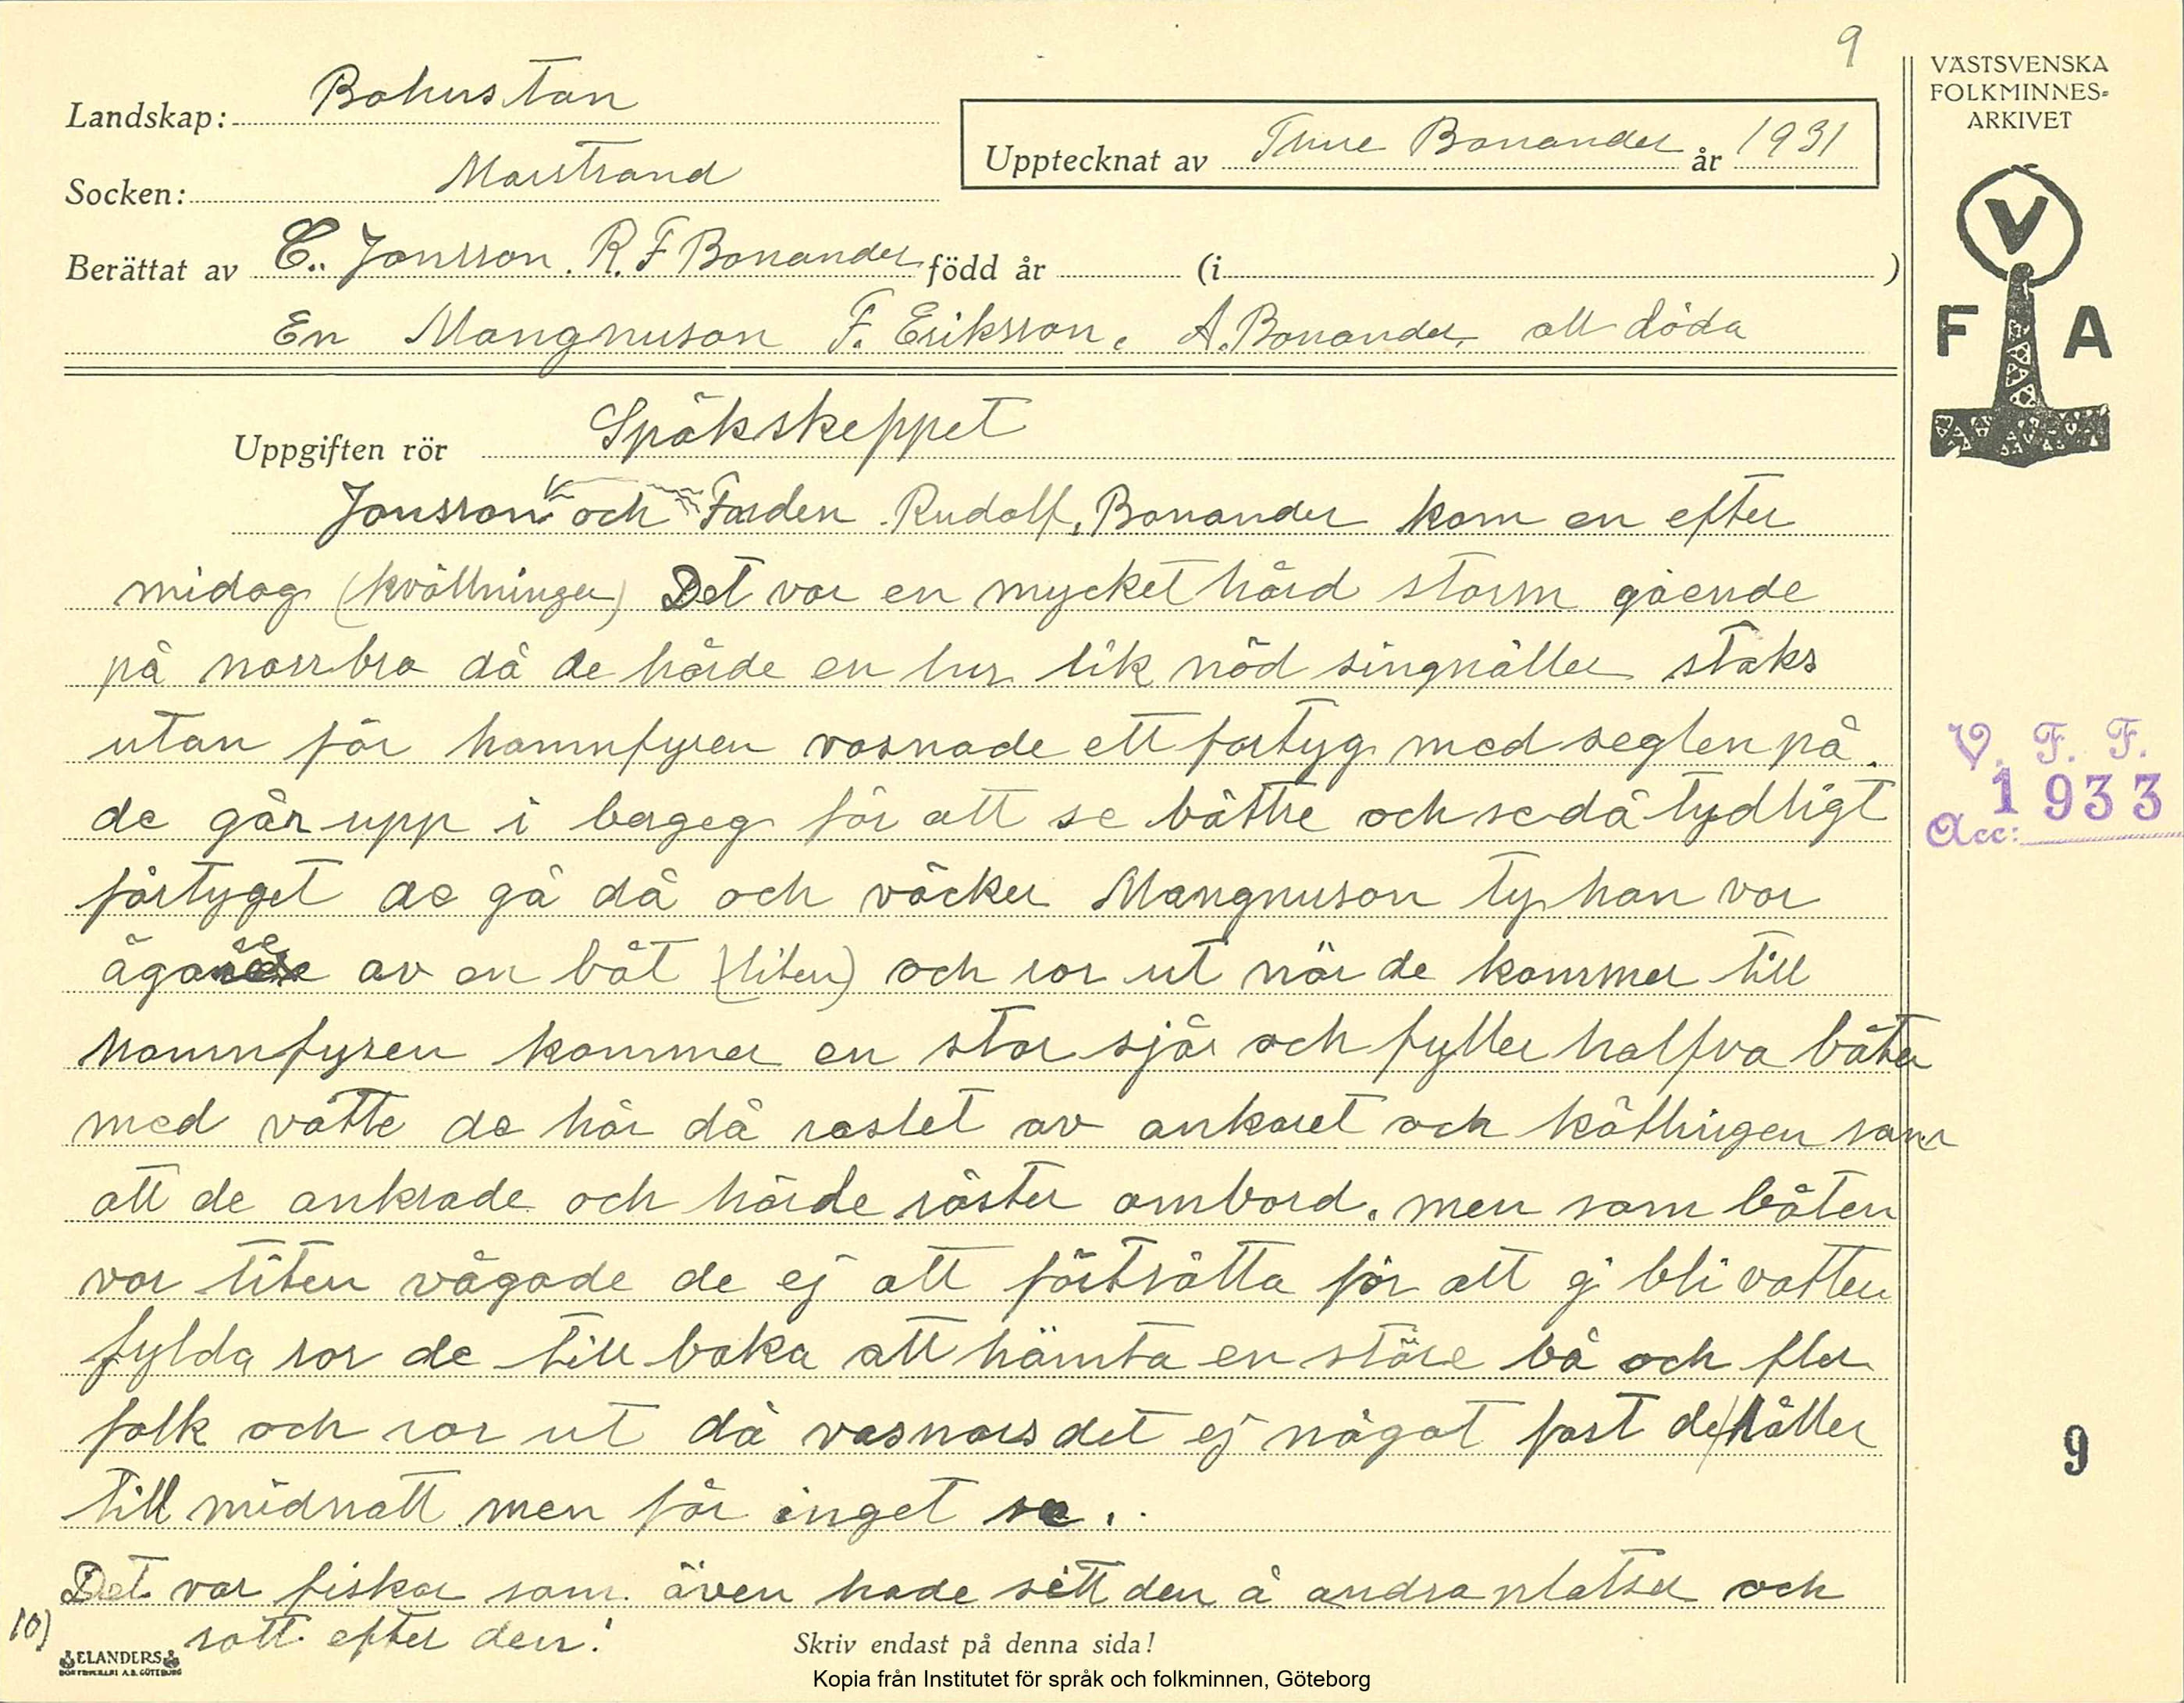 9
VÄSTSVENSKA
FOLKMINNES-
ARKIVET
Landskap: Bohus Tän
Upptecknat av Thure Bonander år 1931
Socken: Marstrand
V
F A
Berättat av C. Jonsson. R. F Bonander född år (i )
En Mangnuson F. Eriksson. A. Bonander. all döda
Uppgiften rör Spökskeppet
Jonsson och Farden Rudolf, Bonander kom en efter
midag (kvällninger) Det var en mycket hård storm gående
på norrbro då de hörde en lur lik nöd singnäller staks
utan för hamnfyren varnade ett fortyg med seglen på.
de går upp i bergeg för att se bättre och se då tydligt
förtyget de gå då och väcker Mangnuson ty han var
ägare av en båt (liten) och ror ut när de kommer till
hamnfyren kommer en stor sjör och fyller halfva båten
med vatte de hör då raslet av ankaret och kättingen som
att de ankrade och hörde röster ombord. men som båten
var liten vågade de ej att förtsätta för att ej bli vatten
fylda ror de till baka att hämta en störe bå och fler
folk och ror ut då vasnars det ej något fast de håller
till midnatt men får inget se..
Det var fiskar som även hade sett den å andra platser och
rott efter den!
10)
V. F. F.
1933
Acc:
9
ELANDERS
BOKTRYCKERI A.B. GÖTEBORG
Skriv endast på denna sida!
Kopia från Institutet för språk och folkminnen, Göteborg